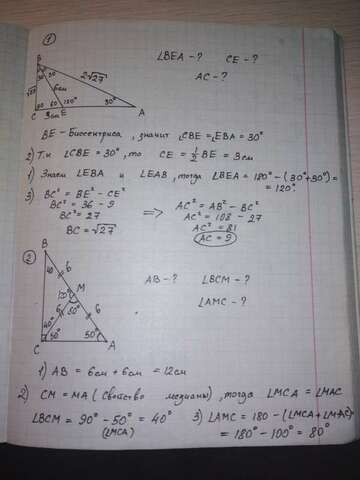 ①
B
30 30
2√27
√27
6см
90 60 120° 30°
C 3см E A
∠BEA - ? CE - ?
AC - ?
BE - Биссектриса, значит ∠CBE = ∠EBA = 30°
2) Т.к ∠CBE = 30°, то CE = 1/2 BE = 3см
1) Знаем ∠EBA и ∠EAB, тогда ∠BEA = 180° - (30°+30°) =
= 120°
3) BC² = BE² - CE²
BC² = 36 - 9
BC² = 27
BC = √27
⟹
AC² = AB² - BC²
AC² = 108 - 27
AC² = 81
AC = 9
②
B
40 6
100° M
6 80° 6
40°
50° 50°
C A
AB - ? ∠BCM - ?
∠AMC - ?
1) AB = 6см + 6см = 12см
2) CM = MA (Свойство медианы), тогда ∠MCA = ∠MAC
∠BCM = 90° - 50° = 40°
(∠MCA)
3) ∠AMC = 180 - (∠MCA + ∠MAC)
= 180° - 100° = 80°